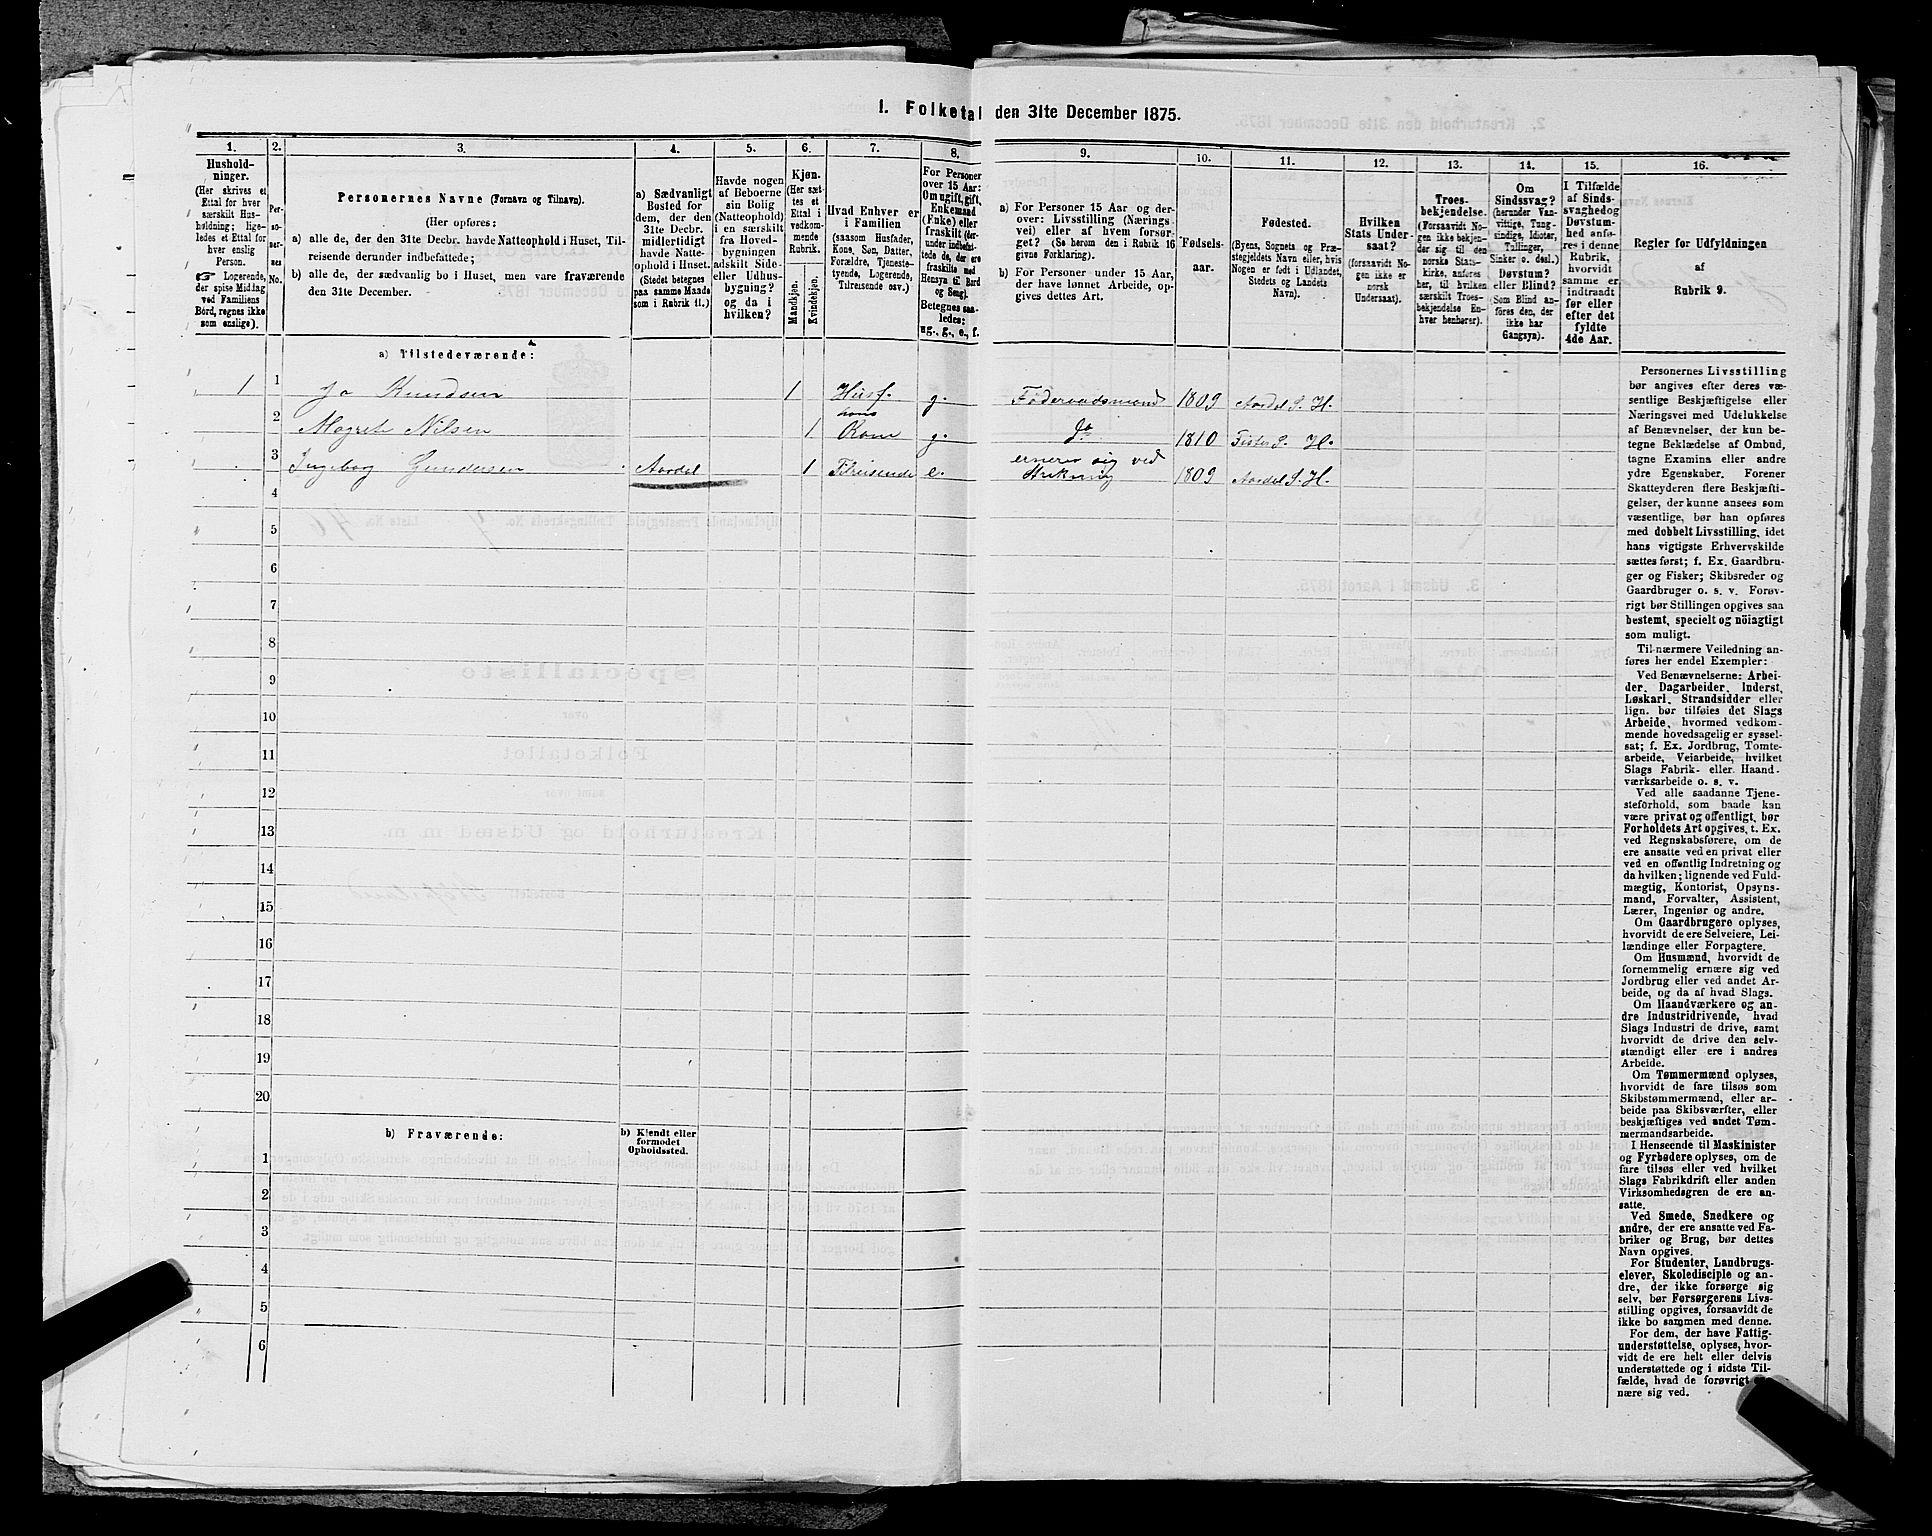 1. Folketal den 31te December 1875.
1.
2.
3.
4.
5.
6.
7.
8.
9.
10.
11.
12.
13.
14.
15.
16.
Hushold-
ninger.
(Her skrives et
Ettal for hver
særskilt Hus-
holdning; lige-
ledes et Ettal for
hver enslig
Person.
☞ Logerende,
der spise Middag
ved Familiens
Bord, regnes ikke
som enslige).
Per-
so-
ner-
nes
No.
Personernes Navne (Fornavn og Tilnavn).
(Her opføres:
a) alle de, der den 31te Decbr. havde Natteophold i Huset, Til-
reisende derunder indbefattede;
b) alle de, der sædvanlig bo i Huset, men vare fraværende
den 31te December.
a) Sædvanligt
Bosted for
dem, der den
31te Decbr.
midlertidigt
havde Natte-
ophold i Huset.
(Stedet betegnes
paa samme Maade
som i Rubrik 11.)
Havde nogen
af Beboerne
sin Bolig
(Natteophold)
i en særskilt
fra Hoved-
bygningen
adskilt Side-
eller Udhus-
bygning?
og da i
hvilken?
Kjøn.
(Her sæt-
tes et
Ettal i
vedkom-
mende
Rubrik.
Mandkjøn.
Kvindekjøn.
Hvad Enhver er
i Familien
(saasom Husfader,
Kone, Søn, Datter,
Forældre, Tjeneste-
tyende, Logerende,
Tilreisende osv.)
For Personer
over 15 Aar:
Om ugift, gift,
Enkemand
(Enke) eller
fraskilt (her-
under indbefat-
tede de, der ere
fraskilte med
Hensyn til Bord
og Seng).
Betegnes saa-
ledes:
ug., g., e., f.
a) For Personer 15 Aar og der-
over: Livsstilling (Nærings-
vei) eller af hvem forsør-
get? (Se herom den i Rubrik 16
givne Forklaring).
b) For Personer under 15 Aar,
der have lønnet Arbeide, op-
gives dettes Art.
Fødsels-
aar.
Fødested.
(Byens, Sognets og Præ-
stegjeldets Navn eller, hvis
Nogen er født i Udlandet,
Stedets og Landets
Navn).
Hvilken
Stats Under-
saat?
(forsaavidt No-
gen ikke er
norsk
Undersaat).
Troes-
bekjendelse.
(Forsaavidt No-
gen ikke bekjen-
der sig til den
norske Stats-
kirke, anføres
her, til hvilken
særskilt Troes-
bekjendelse En-
hver henhører).
Om
Sindssvag?
(herunder Van-
vittige, Tung-
sindige, Idioter,
Tullinger,
Sinker o. desl.)
Døvstum?
eller Blind?
(Som Blind an-
føres den, der
ikke har
Gangsyn).
I Tilfælde
af Sinds-
svaghed og
Døvstum-
hed anfø-
res i denne
Rubrik,
hvorvidt
samme er
indtraadt
før eller
efter det
fyldte
4de Aar.
Regler for Udfyldningen
af
Rubrik 9.
a) Tilstedeværende:
1 1 Jo Knudsen 1 Husf. g. Føderaadsmand 1809 Aardal S. H.
2 Magrete Nilsen 1 hans Kone g. do 1810 Fister S. H.
3 Ingeborg Gundersen Aardal 1 Tilreisende e. ernerer sig ved Strikning 1809 Aardal S. H.
4
5
6
7
8
9
10
11
12
13
14
15
16
17
18
19
20
b) Fraværende:
b) Kjendt eller
formodet
Opholdssted.
1
2
3
4
5
6
Personernes Livsstilling
bør angives efter deres væ-
sentlige Beskjæftigelse eller
Næringsvei med Udelukkelse
af Benævnelser, der kun be-
tegne Beklædelse af Ombud,
tagne Examina eller andre
ydre Egenskaber. Forener
Skatteyderen flere Beskjæfti-
gelser, der kunne ansees som
væsentlige, bør han opføres
med dobbelt Livsstilling, idet
hans vigtigste Erhvervskilde
sættes først; f. Ex. Gaardbru-
ger og Fisker; Skibsreder og
Gaardbruger o. s. v. Forøv-
rigt bør Stillingen opgives saa
bestemt, specielt og nöiagtigt
som muligt.
Til nærmere Veiledning an-
føres her endel Exempler:
Ved Benævnelserne: Arbei-
der, Dagarbeider, Inderst,
Løskarl, Strandsidder eller
lign. bør tilføies det Slags
Arbeide, hvormed vedkom-
mende hovedsagelig er syssel-
sat; f. Ex. Jordbrug, Tomte-
arbeide, Veiarbeide, hvilket
Slags Fabrik- eller Haand-
værksarbeide o. s. v.
Ved alle saadanne Tjene-
steforhold, som baade kan
være privat og offentligt, bør
Forholdets Art opgives, t. Ex.
ved Regnskabsførere, om de
ere ansatte ved en privat eller
ved en offentlig Indretning og
da hvilken; lignende ved Fuld-
mægtig, Kontorist, Opsyns-
mand, Forvalter, Assistent,
Lærer, Ingeniør og andre.
Om Gaardbrugere oplyses,
hvorvidt de ere Selveiere, Lei-
lændinge eller Forpagtere.
Om Husmænd, hvorvidt de
fornemmelig ernære sig ved
Jordbrug eller ved andet Ar-
beide, og da af hvad Slags.
Om Haandværkere og an-
dre Industridrivende, hvad
Slags Industri de drive, samt
hvorvidt de drive den selv-
stændigt eller ere i andres
Arbeide.
Om Tømmermænd oplyses,
hvorvidt de fare tilsøs som
Skibstømmermænd, eller ar-
beide paa Skibsværfter, eller
beskjæftiges ved andet Tøm-
mermandsarbeide.
I Henseende til Maskinister
og Fyrbødere oplyses, om de
fare tilsøs eller ved hvilket
Slags Fabrikdrift eller anden
Virksomhedsgren de ere an-
satte.
Ved Smede, Snedkere og
andre, der ere ansatte ved Fa-
briker og Brug, bør dettes
Navn opgives.
For Studenter, Landbrugs-
elever, Skoledisciple og an-
dre, der ikke forsørge sig
selv, bør Forsørgerens Livs-
stilling opgives, forsaavidt de
ikke bo sammen med denne.
For dem, der have Fattig-
understøttelse, oplyses, hvor-
vidt de ere helt eller delvis
understøttede og i sidste Til-
fælde, hvad de forøvrigt
nære sig ved.